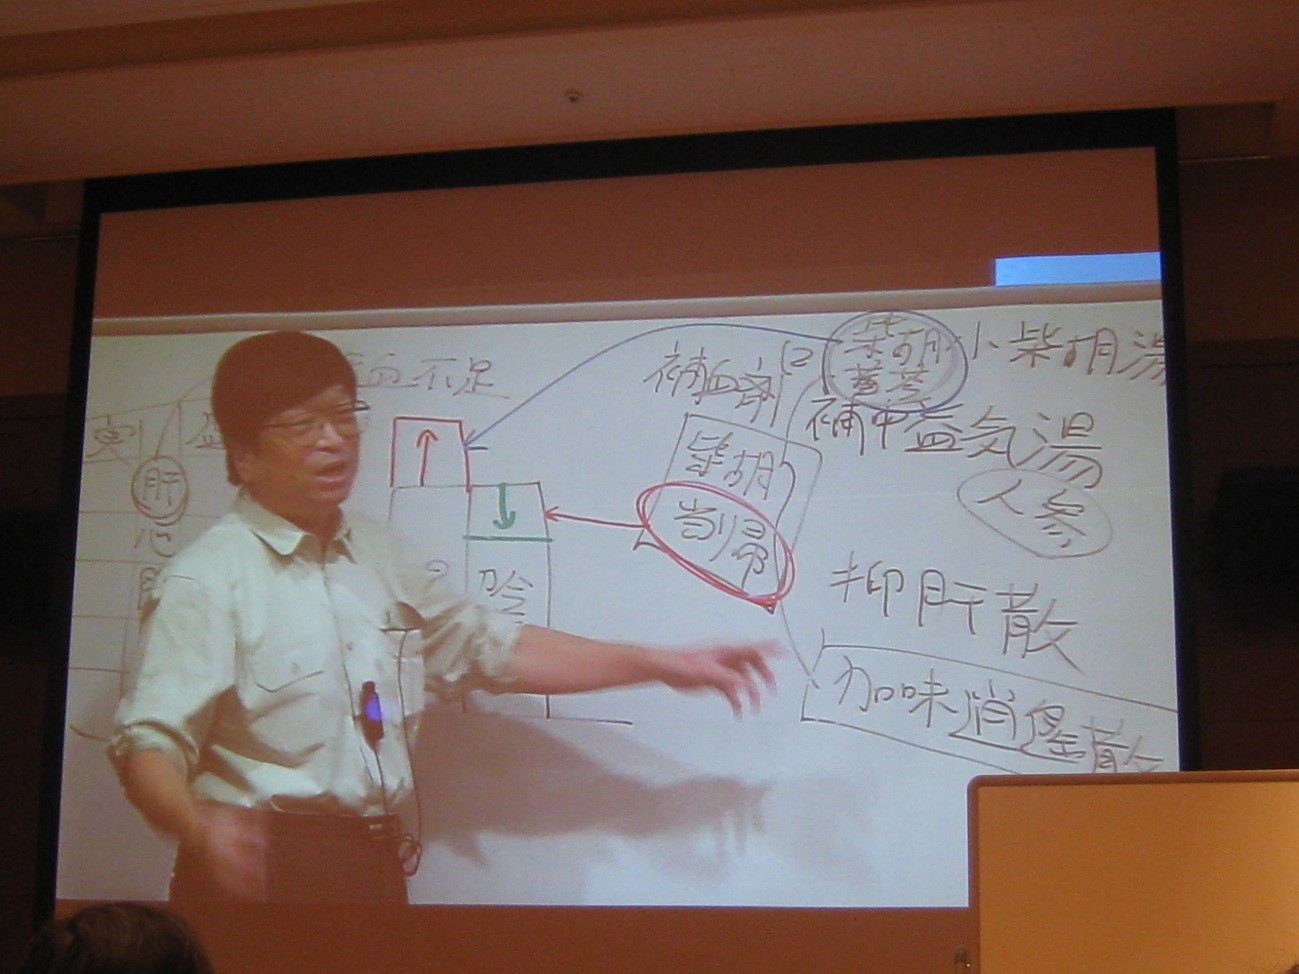 血不足
実
肝
心
陰
補血剤
柴胡
当帰
柴胡
黄芩
小柴胡湯
補中益気湯
人参
抑肝散
加味逍遥散